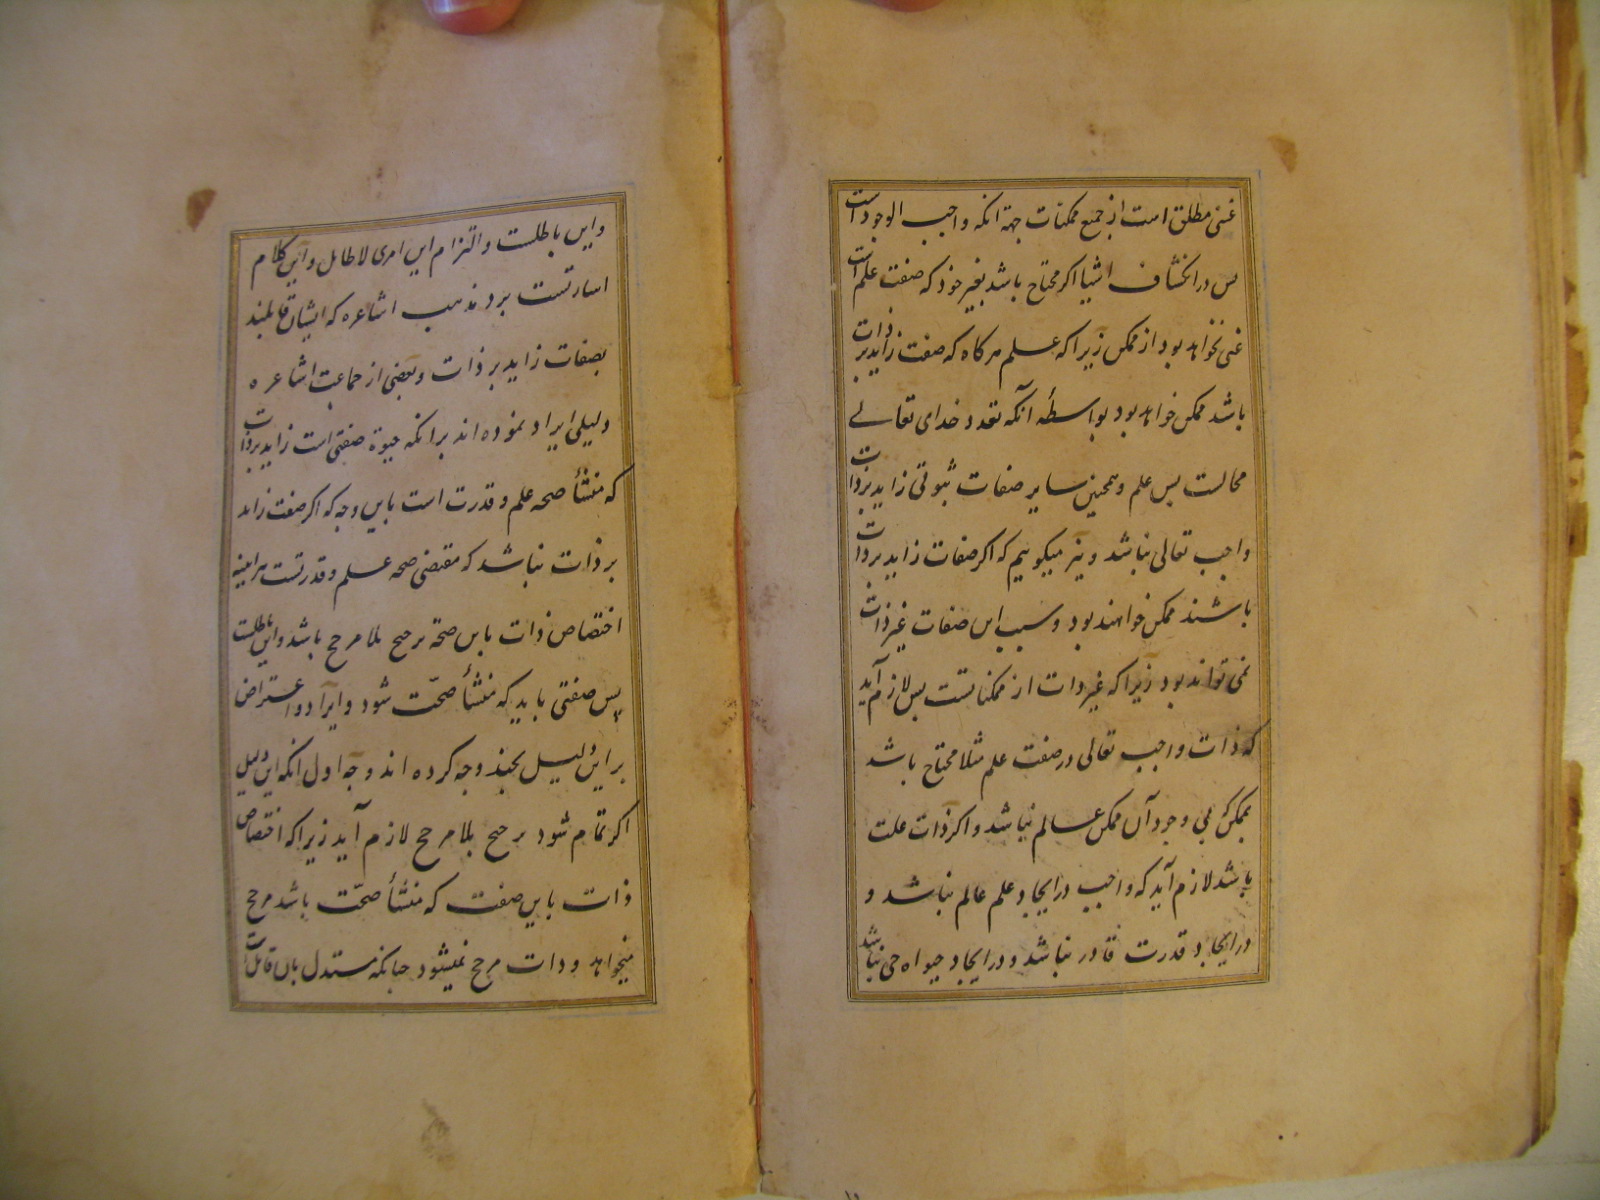 غنی مطلق است از جمیع ممکنات جهة انکه واجب الوجود است
پس در انکشاف اشیا اکر محتاج باشد بغیر خود که صفت علم است
غنی نخواهد بود از ممکن زیرا که علم هرکاه که صفت زاید بر ذات
باشد ممکن خواهد بود بواسطهٔ آنکه تعدد خدای تعالی
محالست پس علم و همچنین سایر صفات ثبوتی زاید بر ذات
واجب تعالی نباشد و نیز میکوییم که اکر صفات زاید بر ذات
باشند ممکن خواهند بود و سبب این صفات غیر ذات
نمی تواند بود زیرا که غیر ذات از ممکناتست پس لازم آید
که ذات واجب تعالی در صفت علم مثلا محتاج باشد
بممکن که بی وجود آن ممکن عالم نباشد و اکر ذات علت
باشد لازم آید که واجب در ایجاد علم عالم نباشد و
در ایجاد قدرت قادر نباشد و در ایجاد حیواه حی نباشد
و این باطلست و التزام این امری لا طایل و این کلام
اشارتست برد مذهب اشاعره که ایشان قایلند
بصفات زاید بر ذات و بعضی از جماعت اشاعره
دلیلی ایراد نموده اند برانکه حیوة صفتی است زاید بر ذات
که منشأ صحه علم و قدرت است باین وجه که اکر صفت زاید
بر ذات نباشد که مقتضی صحه علم و قدرتست هراینه
اختصاص ذات باین صحة ترجیح بلا مرجح باشد و این باطلست
پس صفتی باید که منشأ صحّت شود و ایراد و اعتراض
بر این دلیل بچند وجه کرده اند وجه اول انکه این دلیل
اکر تمام شود ترجیح بلا مرجح لازم آید زیرا که اختصاص
ذات باین صفت که منشأ صحّت باشد مرجح
میخواهد و ذات مرجح نمیشود چنانکه مستدل بان قایل است